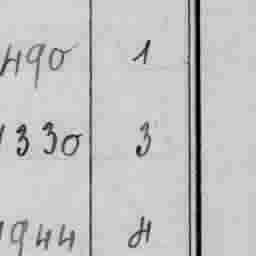 490 1
1330 3
1944 4